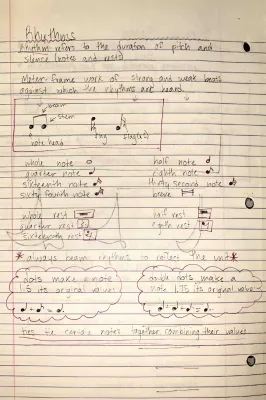 Rhythms
Rhythm refers to the duration of pitch and
silence (notes and rests)
Meter-frame work of strong and weak beats
against which the rhythms are heard.
beam
stem
note head
flag
flag(s)
whole note
half note
quarter note
eighth note
sixteenth note
thirty second note
sixty fourth note
breve
whole rest
half rest
quarter rest
eighth rest
sixteenth rest
*always beam rhythms to reflect the unit*
dots make a note
1.5 its original value
double dots make a
note 1.75 its original value
ties tie certain notes together combining their values